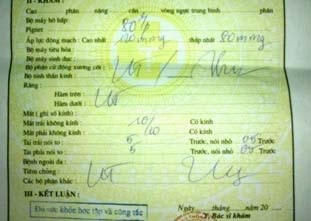 II - KHÁM :
Cao phân nặng cân vòng ngực trung bình phân
Bộ máy hô hấp: 80%
Pignet
Áp lực động mạch : Cao nhất 120 mmg thấp nhất 80 mmg
Bộ máy tiêu hóa :
Bộ máy sinh dục:
Bộ phận cử động xương cốt :
Bộ tinh thần kinh :
Răng :
Hàm trên :
Hàm dưới :
Mắt ( ghi số kính) :
Mắt trái không kính : 10/10 Có kính
Mắt phải không kính : Có kính
Tai trái nói to : 5 Trước, nói nhỏ 0.5 Trước
Tai phải nói to : 5 Trước, nói nhỏ 0.5 Trước
Bệnh ngoài da :
Tiêm chủng :
Các bộ phận khác :
III - KẾT LUẬN :
Đủ sức khỏe học tập và công tác
Ngày tháng năm 20
Y, Bác sĩ khám